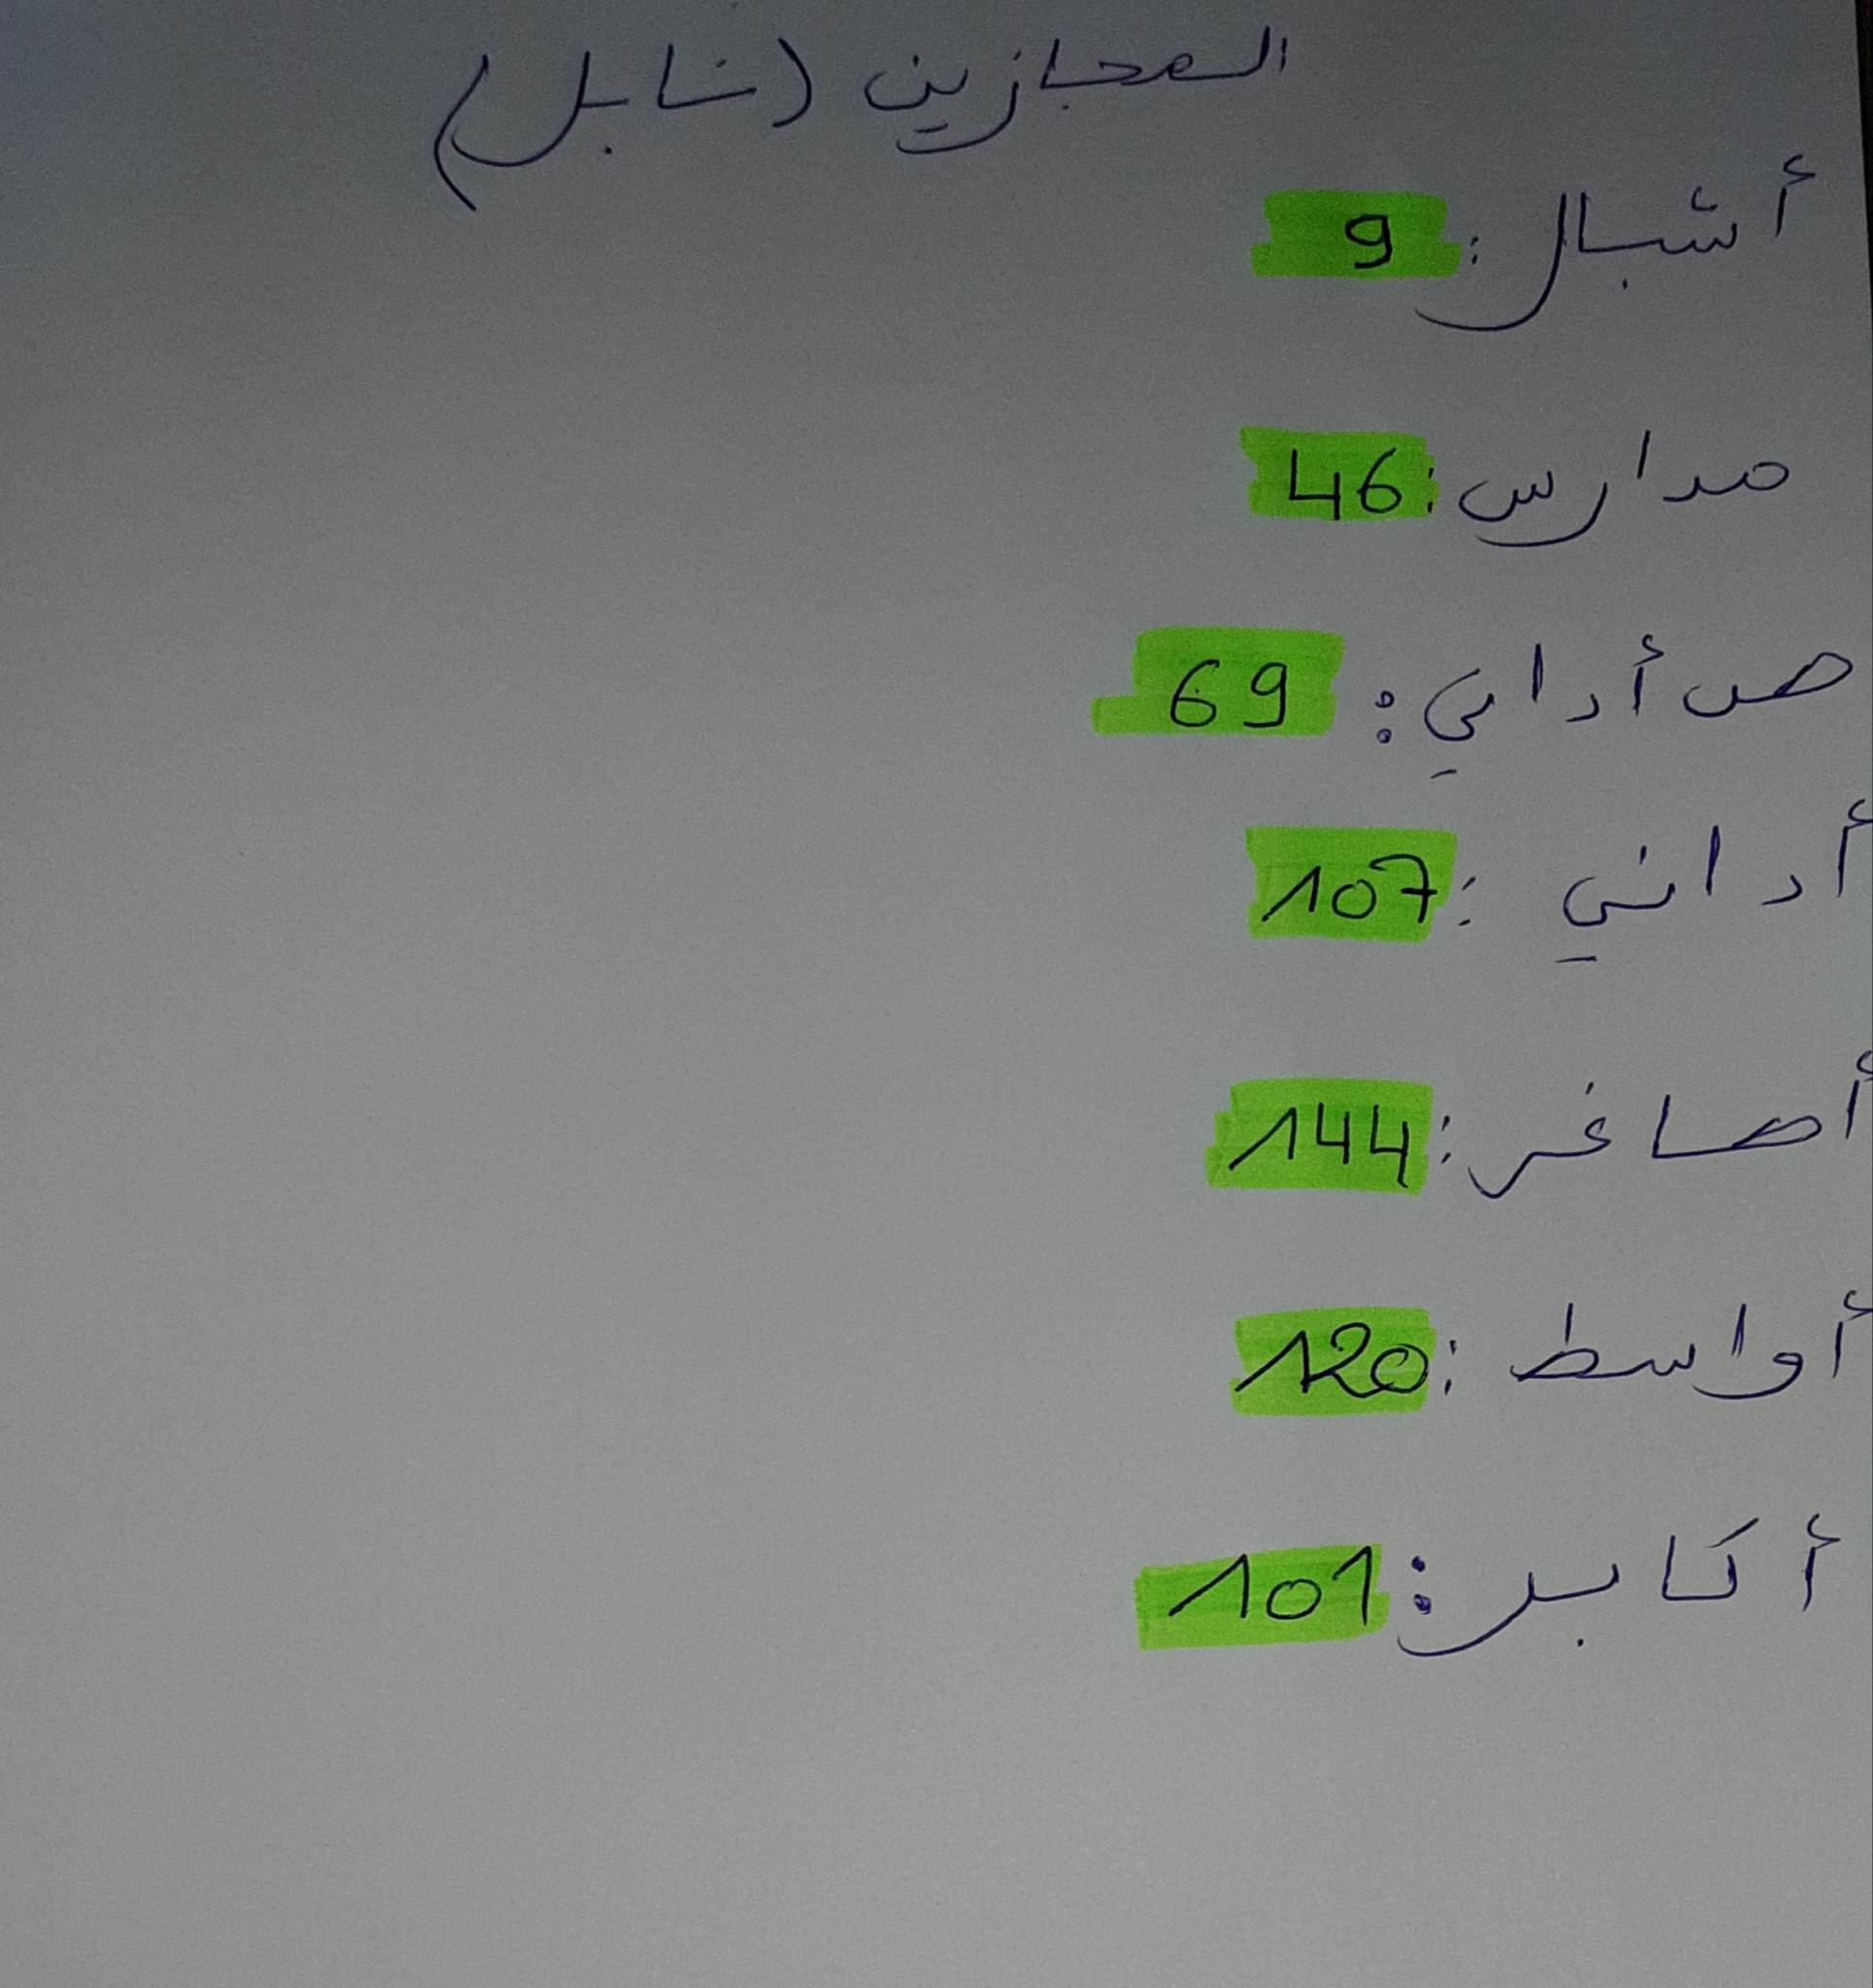 المجازين (نابل)
أشبال: 9
مدارس: 46
ص أداني: 69
أداني: 107
أصاغر: 144
أواسط: 120
أكابر: 101